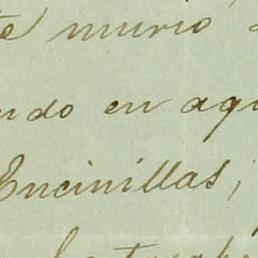 te murio
ndo en aqu
Encinillas;